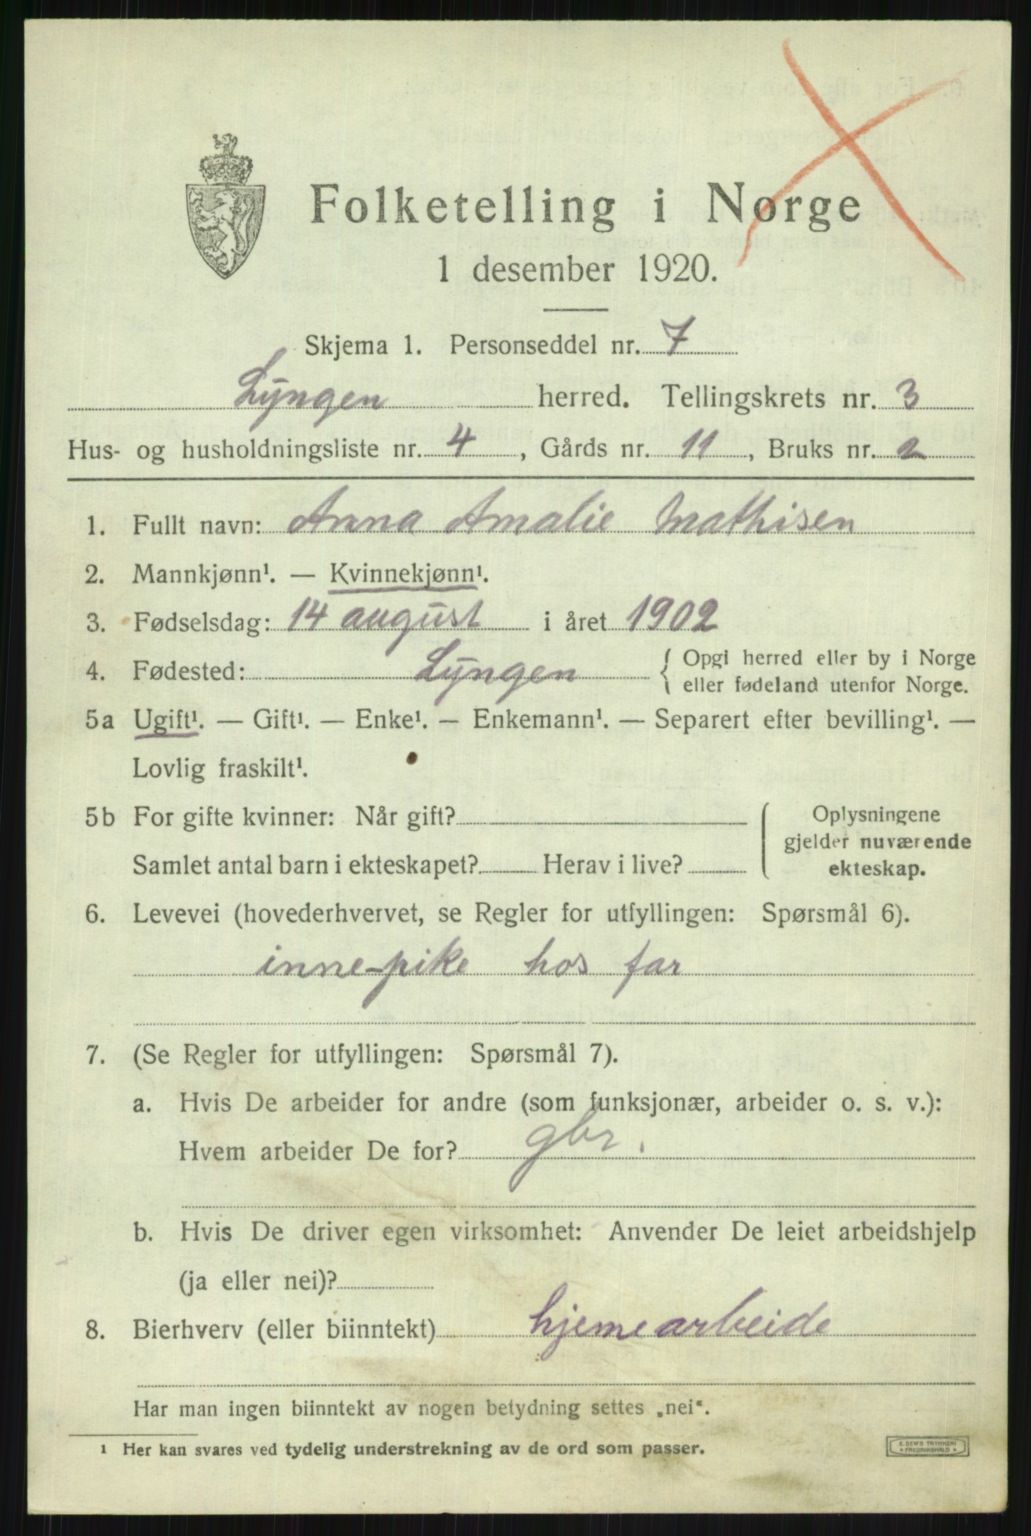 Folketelling i Norge
1 desember 1920.
Skjema 1. Personseddel nr. 7
Lyngen herred. Tellingskrets nr. 3
Hus- og husholdningsliste nr. 4, Gårds nr. 11, Bruks nr. 2
1. Fullt navn: Anna Amalie Mathisen
2. Mannkjønn¹. — Kvinnekjønn¹.
3. Fødselsdag: 14 august i året 1902
4. Fødested: Lyngen { Opgi herred eller by i Norge
eller fødeland utenfor Norge.
5a Ugift¹. — Gift¹. — Enke¹. — Enkemann¹. — Separert efter bevilling¹. —
Lovlig fraskilt¹.
5b For gifte kvinner: Når gift? { Oplysningene
gjelder nuværende
Samlet antal barn i ekteskapet? Herav i live? ekteskap.
6. Levevei (hovederhvervet, se Regler for utfyllingen: Spørsmål 6).
inne-pike hos far
7. (Se Regler for utfyllingen: Spørsmål 7).
a. Hvis De arbeider for andre (som funksjonær, arbeider o. s. v.):
Hvem arbeider De for? gbr.
b. Hvis De driver egen virksomhet: Anvender De leiet arbeidshjelp
(ja eller nei)?
8. Bierhverv (eller biinntekt) hjemearbeide
Har man ingen biinntekt av nogen betydning settes „nei“.
¹ Her kan svares ved tydelig understrekning av de ord som passer.
E. SEM'S TRYKKERI
FREDRIKSHALD